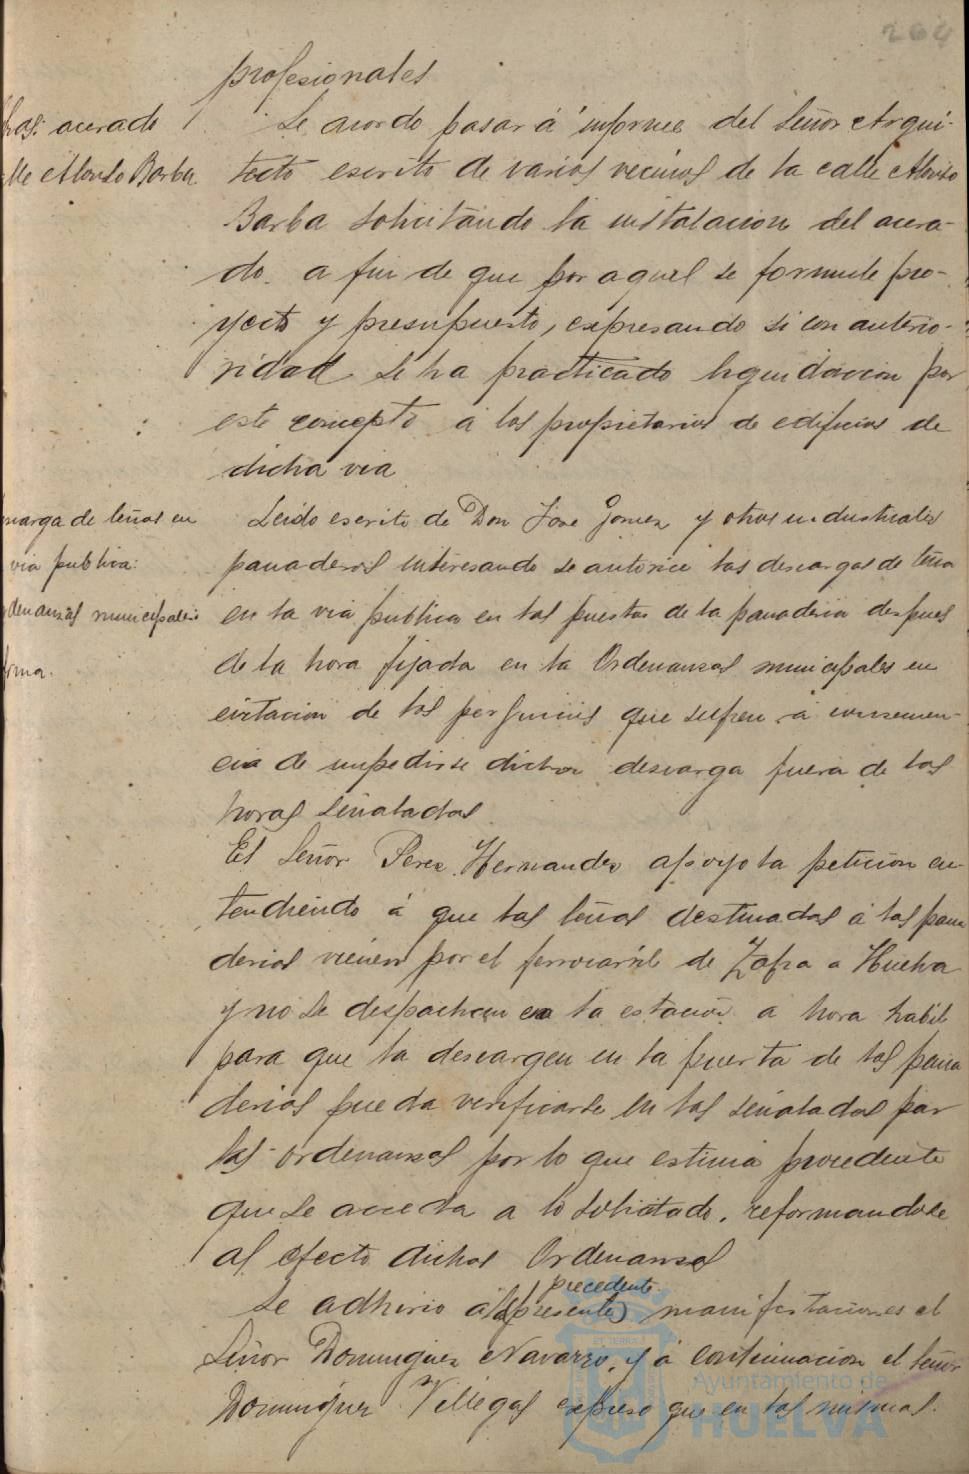 264
profesionales
acerado
Alonso Barba
Se acordo pasar á informe del Señor Arqui-
tecto escrito de varios vecinos de la calle Alonso
Barba solicitando la instalacion del acera-
do. a fin de que por aquel se formule pro-
yecto y presupuesto, expresando si con anterio-
ridad se ha practicado liquidacion por
este concepto á los propietarios de edificios de
dicha via
carga de leñas en
via publica:
denanzas municipales
forma.
Leido escrito de Don Jose Gomez y otros industriales
panaderos interesando se autorice las descargas de leña
en la via publica en las puertas de la panaderia despues
de la hora fijada en la Ordenanzas municipales en
evitacion de los perjuicios que sufren á consecuen-
cia de impedirse dicha descarga fuera de las
horas señaladas
El Señor Perez Hernandez apoyo la peticion en-
tendiendo á que las leñas destinadas á las pana
derias vienen por el ferrocarril de Zafra a Huelva
y no se despachan en la estacion a hora habil
para que la descargen en la puerta de las pana
derias pueda verificarse en las señaladas por
las ordenanzas por lo que estima procedente
que se acceda a lo solicitado, reformandose
al efecto dichas Ordenanzas
precedente
Se adhirio á las (presentes) manifestaciones el
Señor Dominguez Navarro, y á continuacion el Señor
Dominguez Villegas expreso que en las mismas
Ayuntamiento de
HUELVA